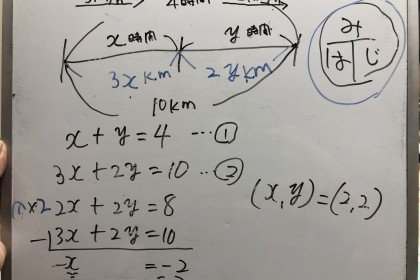 4時間
x時間 y時間
3xkm 2ykm
10km
み
は じ
x+y=4 …①
3x+2y=10 …②
①×2 2x+2y=8
-) 3x+2y=10
-x =-2
(x,y)=(2,2)